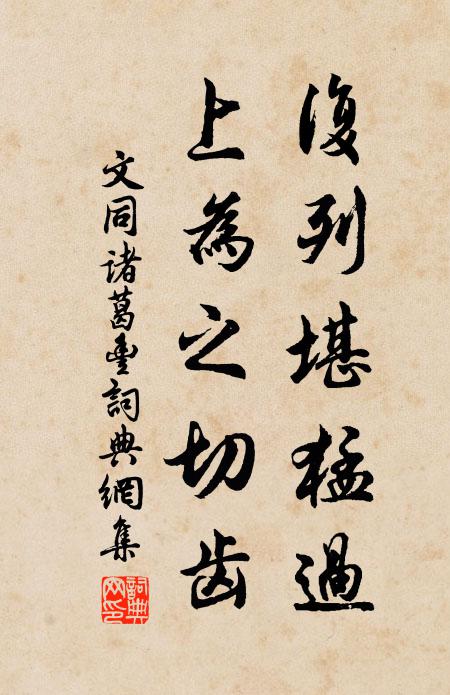 復列堪猛過
上為之切齿
文同諸葛豐詞典網集
詞典網印